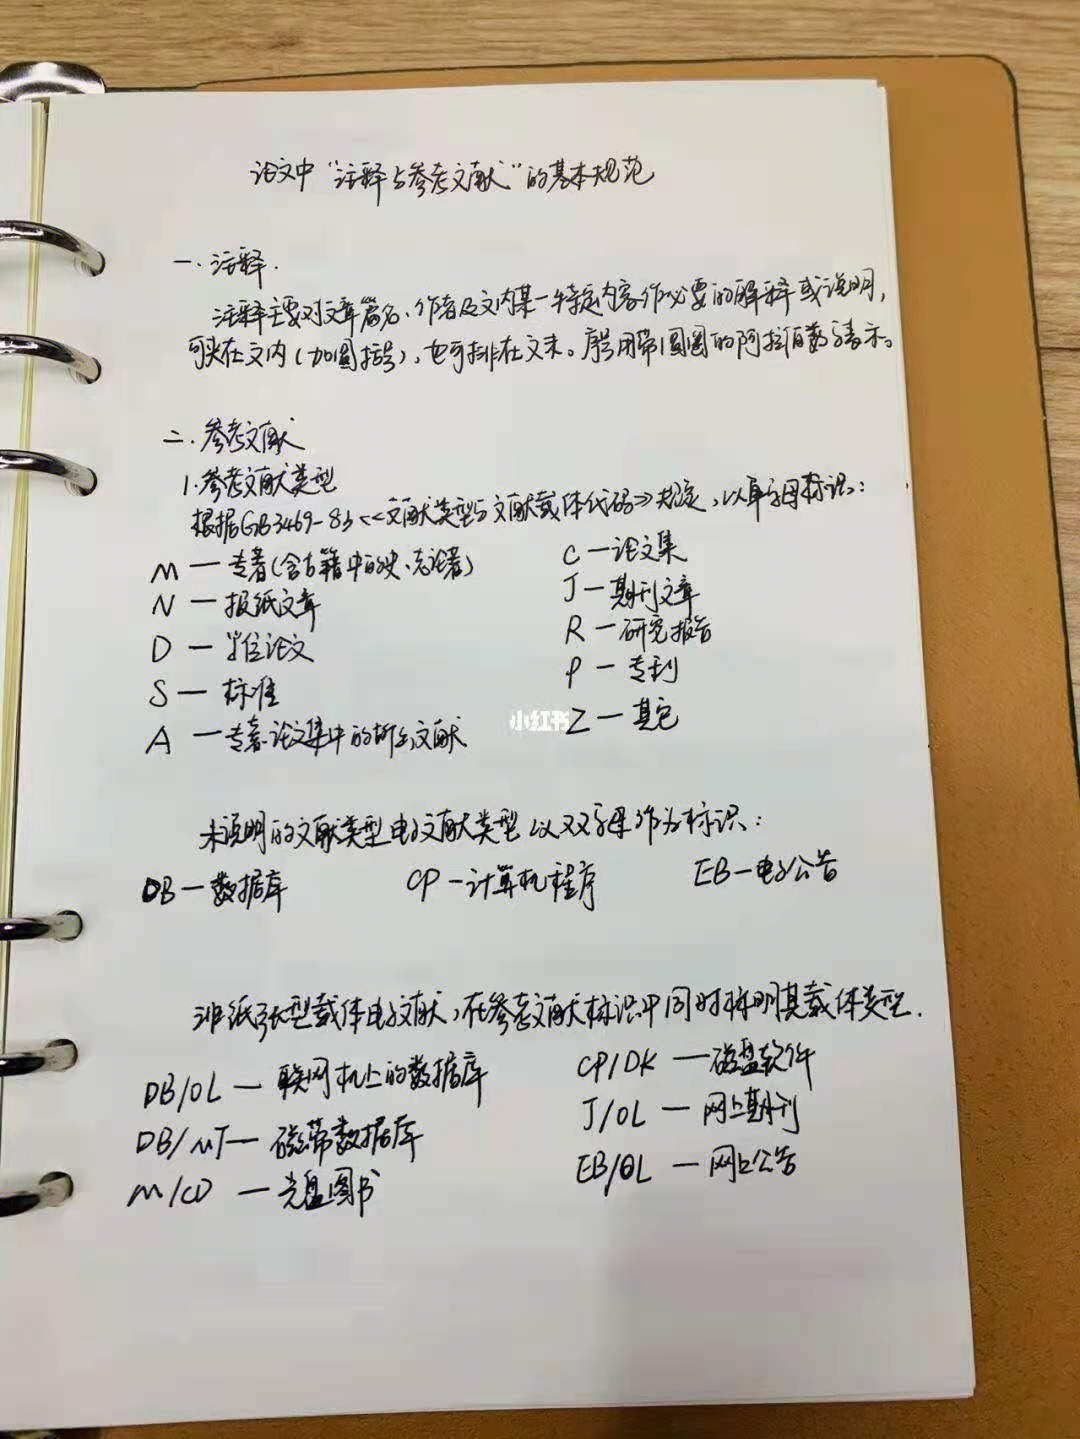 论文中“注释与参考文献”的基本规范
一.注释.
注释主要对文章篇名、作者及文内某一特定内容作必要的解释或说明,
可夹在文内(加圆括号),也可排在文末。序号用带圆圈的阿拉伯数字表示。
二.参考文献
1.参考文献类型
根据GB3469-83《文献类型与文献载体代码》规定,以单字母标识:
M — 专著(含古籍中的史、志论著)
C — 论文集
N — 报纸文章
J — 期刊文章
D — 学位论文
R — 研究报告
S — 标准
P — 专利
A — 专著论文集中的析出文献
Z — 其它
小红书
未说明的文献类型电子文献类型以双字母作为标识:
DB — 数据库 CP — 计算机程序 EB — 电子公告
非纸张型载体电子文献,在参考文献标识中同时标明其载体类型.
DB/OL — 联网机上的数据库
CP/DK — 磁盘软件
DB/MT — 磁带数据库
J/OL — 网上期刊
M/CD — 光盘图书
EB/OL — 网上公告